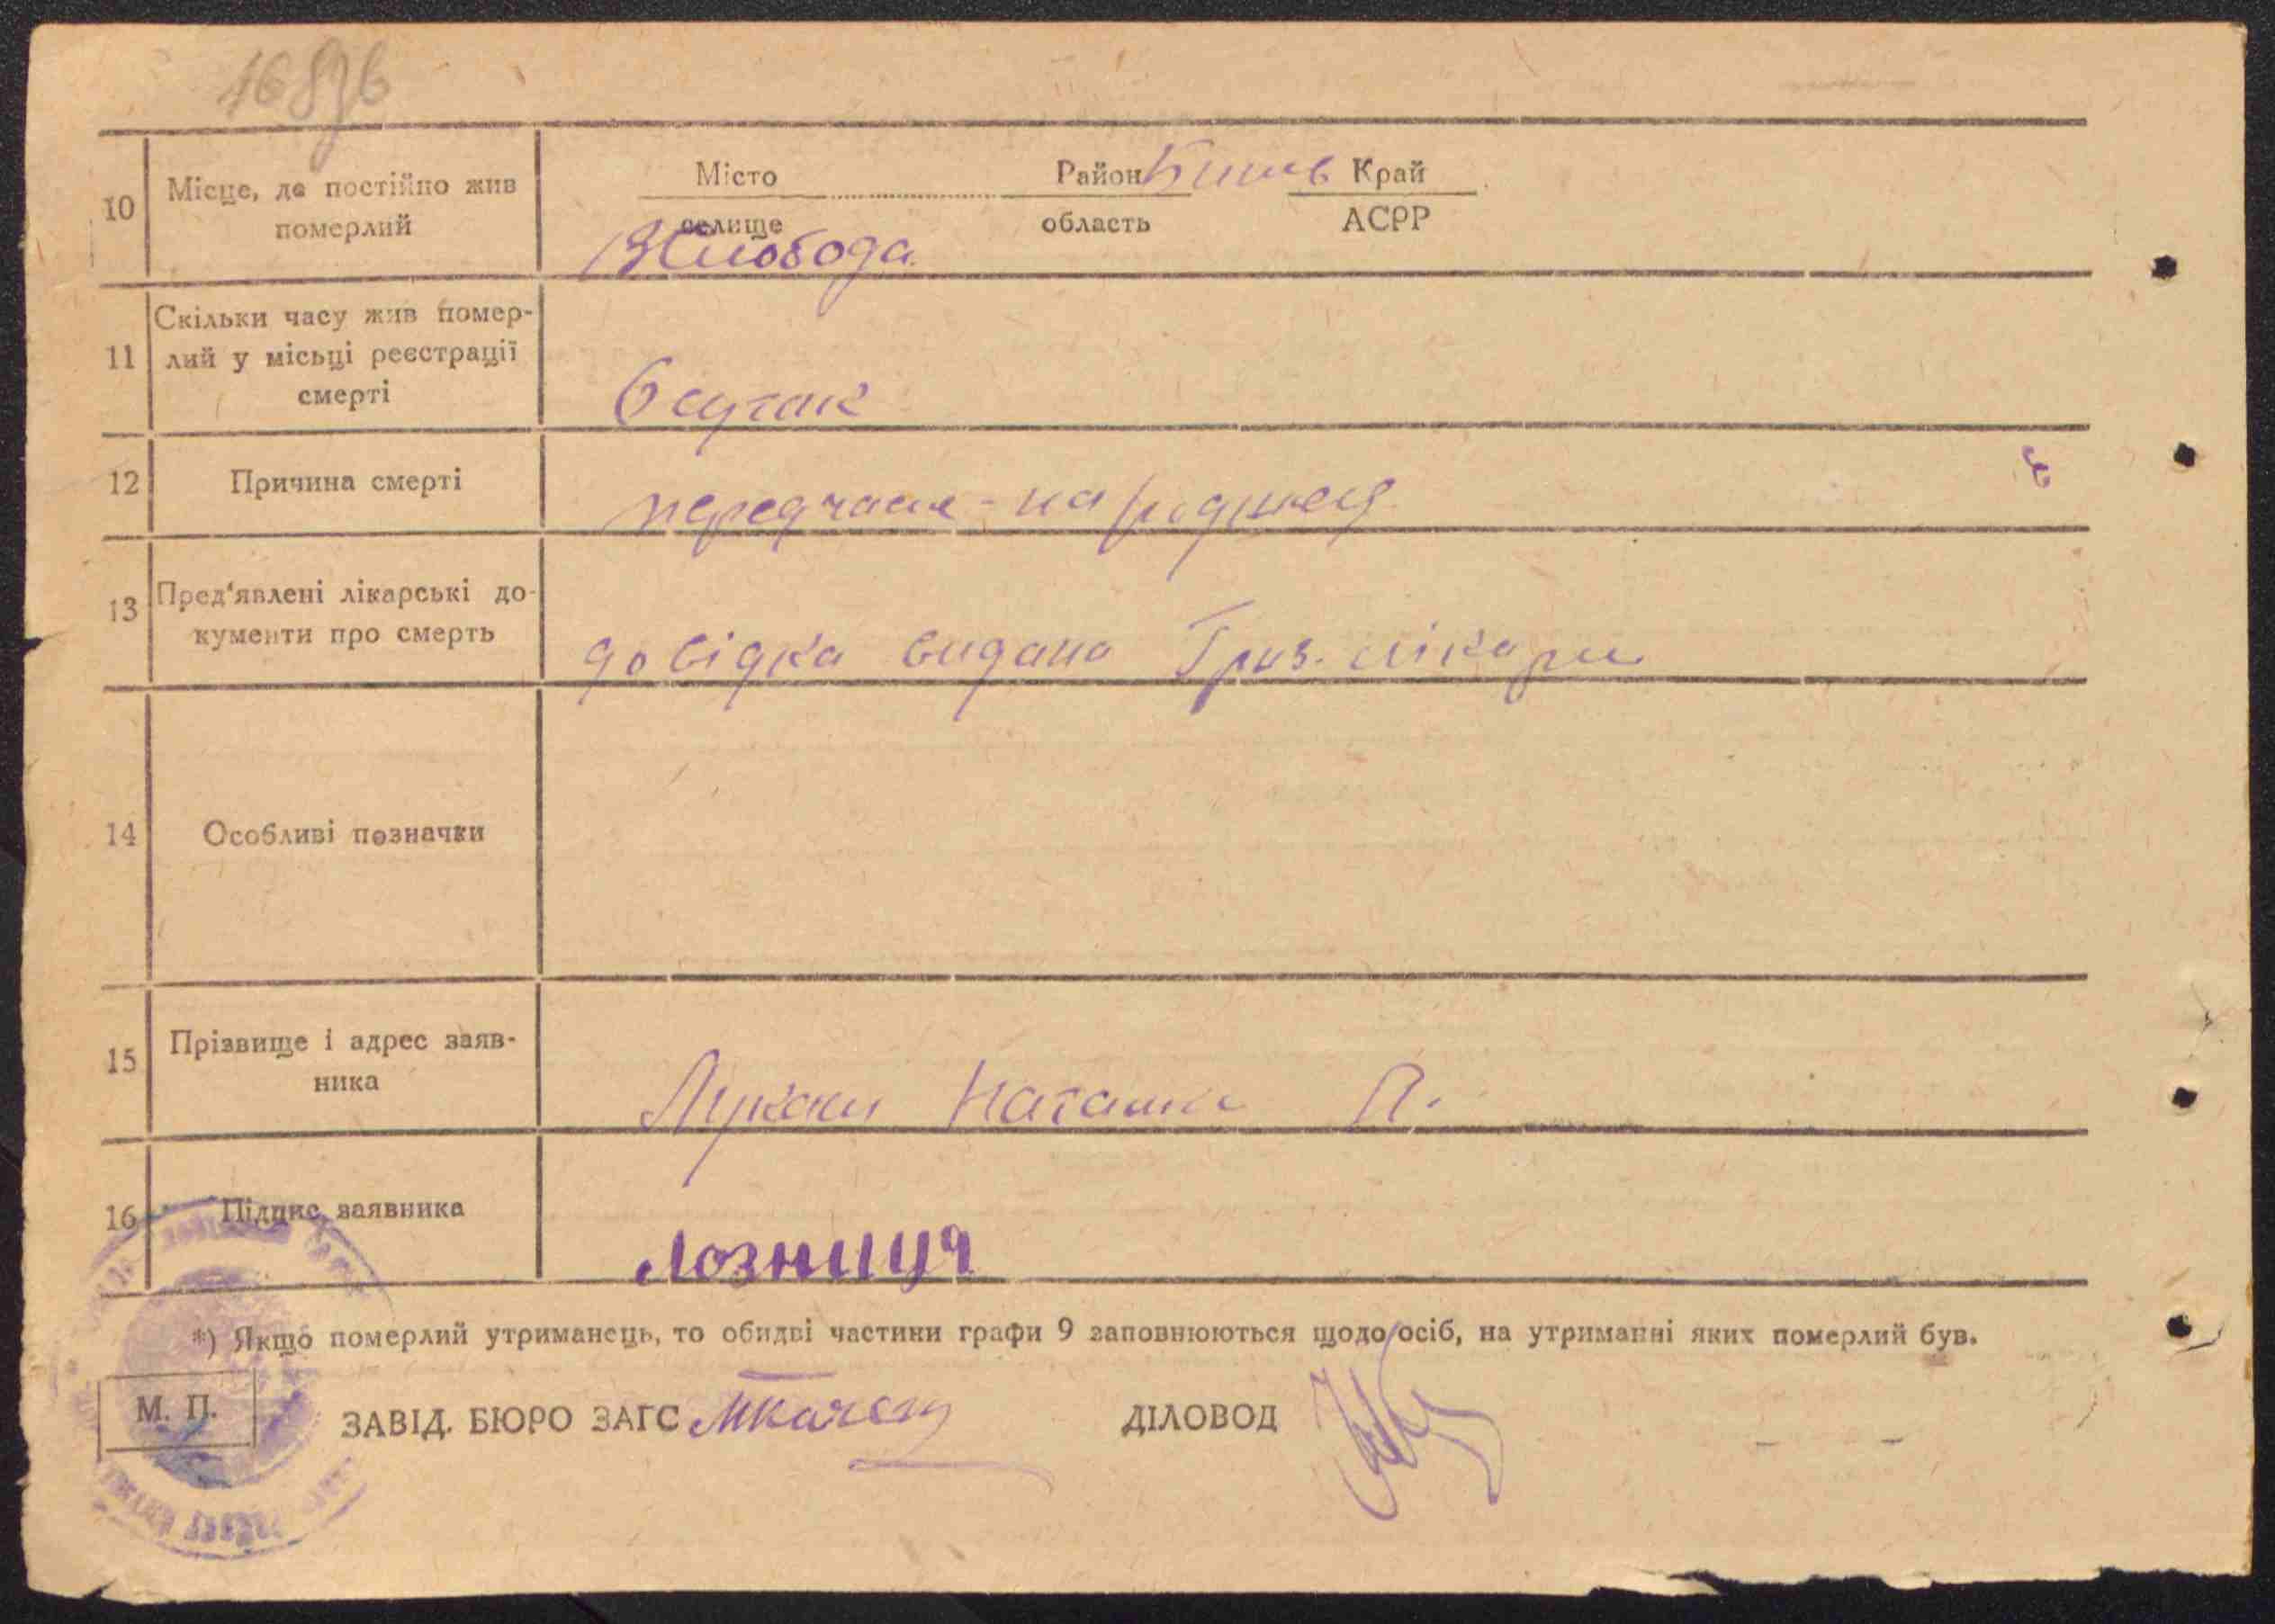 10 Місце, де постійно жив
померлий
Місто Район Край
селище область АСРР
Слобода
11 Скільки часу жив помер-
лий у місьці реєстрації
смерті
6 суток
12 Причина смерті
13 Пред'явлені лікарські до-
кументи про смерть
довідка видана лікарем
14 Особливі позначки
15 Прізвище і адрес заяв-
ника
П.
16 Підпис заявника
Лозниця
*) Якщо померлий утриманець, то обидві частини графи 9 заповнюються щодо осіб, на утриманні яких померлий був.
М. П.
ЗАВІД. БЮРО ЗАГС ДІЛОВОД